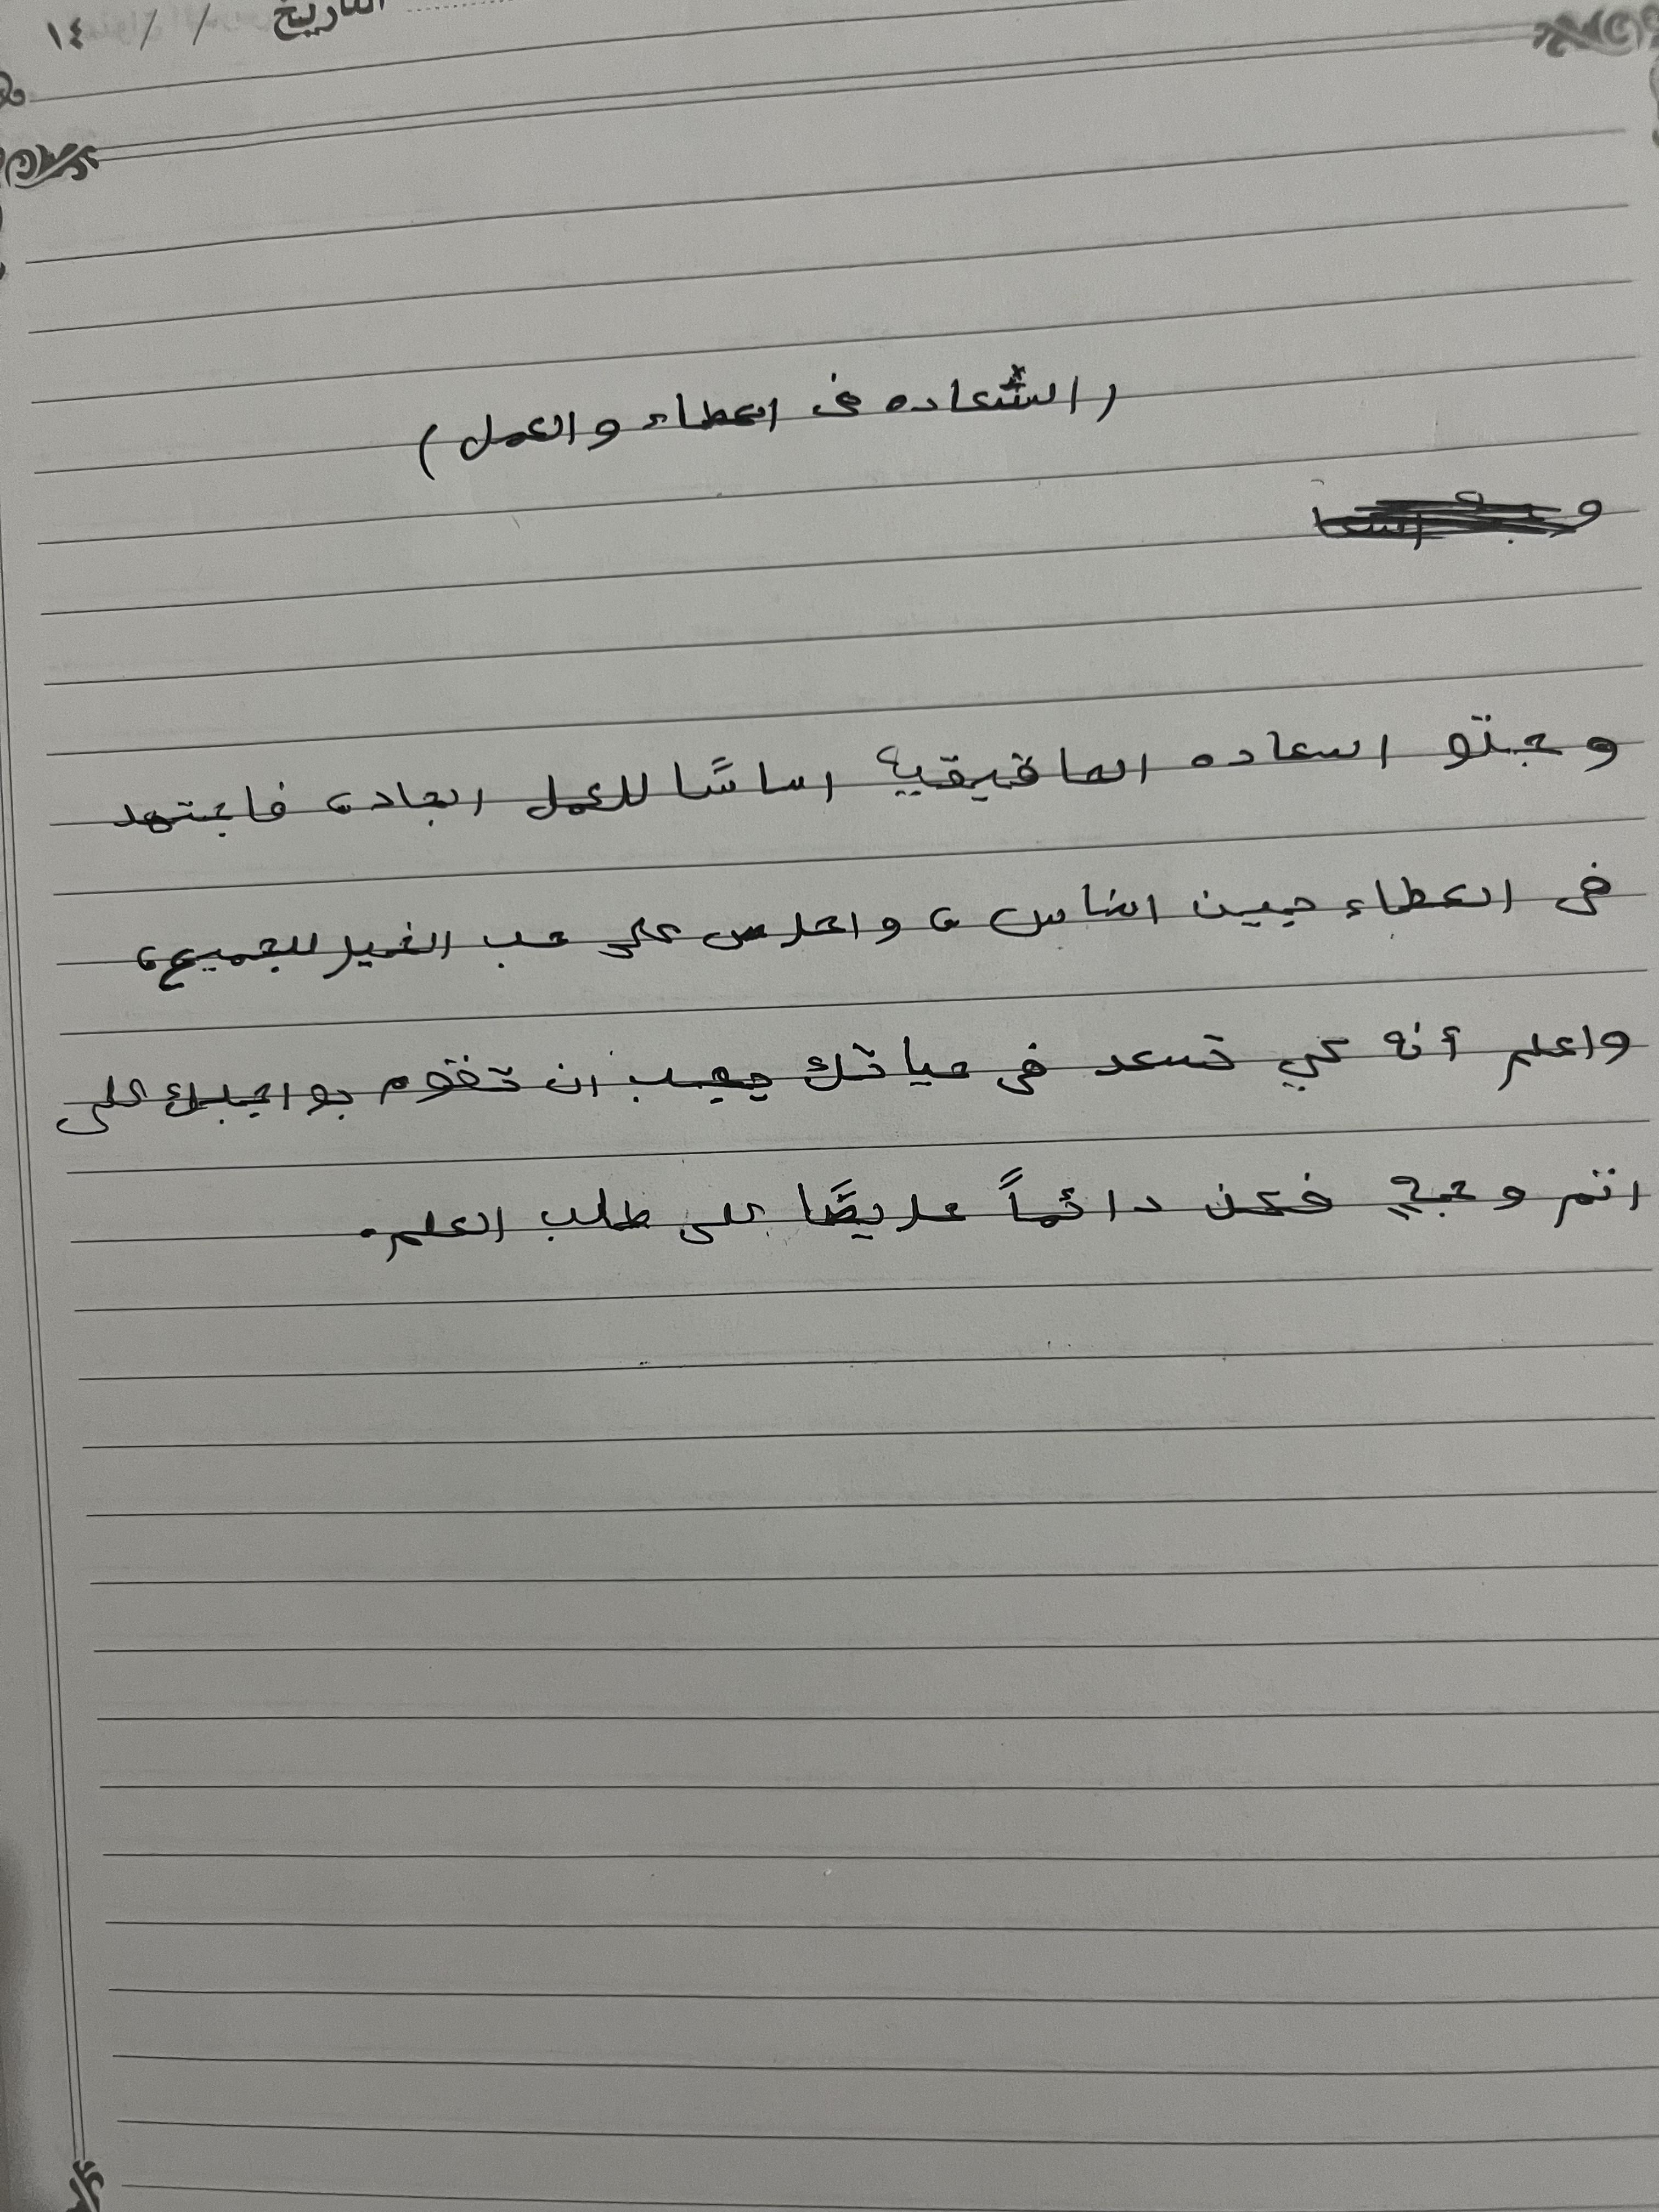 التاريخ / / ١٤
(الشعاده في العطاء والعمل)
وجتو السعاده الحاقيقيه اساسًا للعمل الجاد، فاجتهد
في العطاء حيين الناس، واحرص على حب الخير للجميع،
واعلم أنه كي تسعد في حياتك يجيب ان تقوم بواجبك على
اتم وجهٍ فكن دائماً حريصًا على طلب العلم.